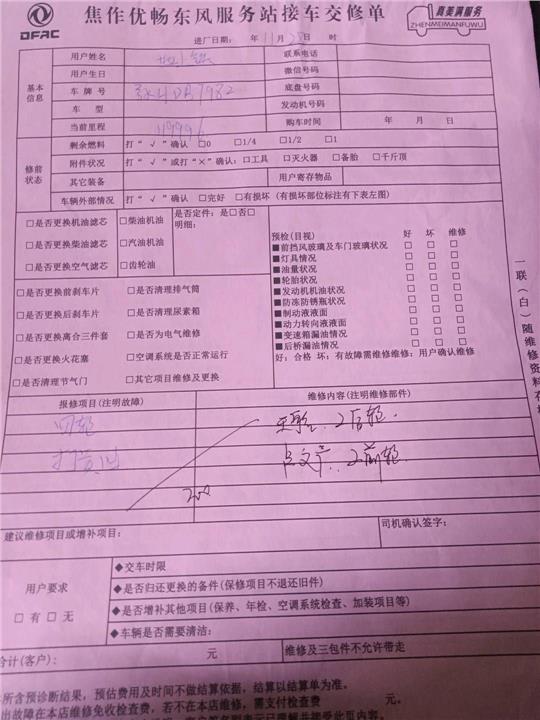 DFAC
焦作优畅东风服务站接车交修单
真美满服务
ZHENMEIMANFUWU
进厂日期： 年 11 月 日 时
基本信息
用户姓名 联系电话
用户生日 微信号码
车牌号 底盘号码
车型 发动机号码
当前里程 购车时间 年 月 日
修前状态
剩余燃料 打“√”确认 □0 □1/4 □1/2 □1
附件状况 打“√”或打“×”确认：□工具 □灭火器 □备胎 □千斤顶
其它装备 用户寄存物品
车辆外部情况 打“√”确认 □完好 □有损坏（有损坏部位标注有下表左图）
□是否更换机油滤芯 □柴油机油 是否定件：是□否□
明细：
□是否更换柴油滤芯 □汽油机油
□是否更换空气滤芯 □齿轮油
□是否更换前刹车片 □是否清理排气筒
□是否更换后刹车片 □是否清理尿素箱
□是否更换离合三件套 □是否为电气维修
□是否更换火花塞 □空调系统是否正常运行
□是否清理节气门 □其它项目维修及更换
预检(目视) 好 坏 维修
■前挡风玻璃及车门玻璃状况 □ □ □
■灯具情况 □ □ □
■油量状况 □ □ □
■轮胎状况 □ □ □
■发动机机油状况 □ □ □
■防冻防锈瓶状况 □ □ □
■制动液液面 □ □ □
■动力转向液液面 □ □ □
■变速箱漏油情况 □ □ □
■后桥漏油情况 □ □ □
好：合格 坏：有故障需维修维修：用户确认维修
一联（白）随维修资料存
报修项目(注明故障) 维修内容(注明维修部件)
四轮
打黄油
200
建议维修项目或增补项目：
司机确认签字：
用户要求
□有 □无
◆交车时限
◆是否归还更换的备件(保修项目不退还旧件)
◆是否增补其他项目(保养、年检、空调系统检查、加装项目等)
◆车辆是否需要清洁：
合计(客户)： 元 维修及三包件不允许带走
所含预诊断结果，预估费用及时间不做结算依据，结算以结算单为准。
出故障在本店维修免收检查费，若不在本店维修，需支付检查费 元。